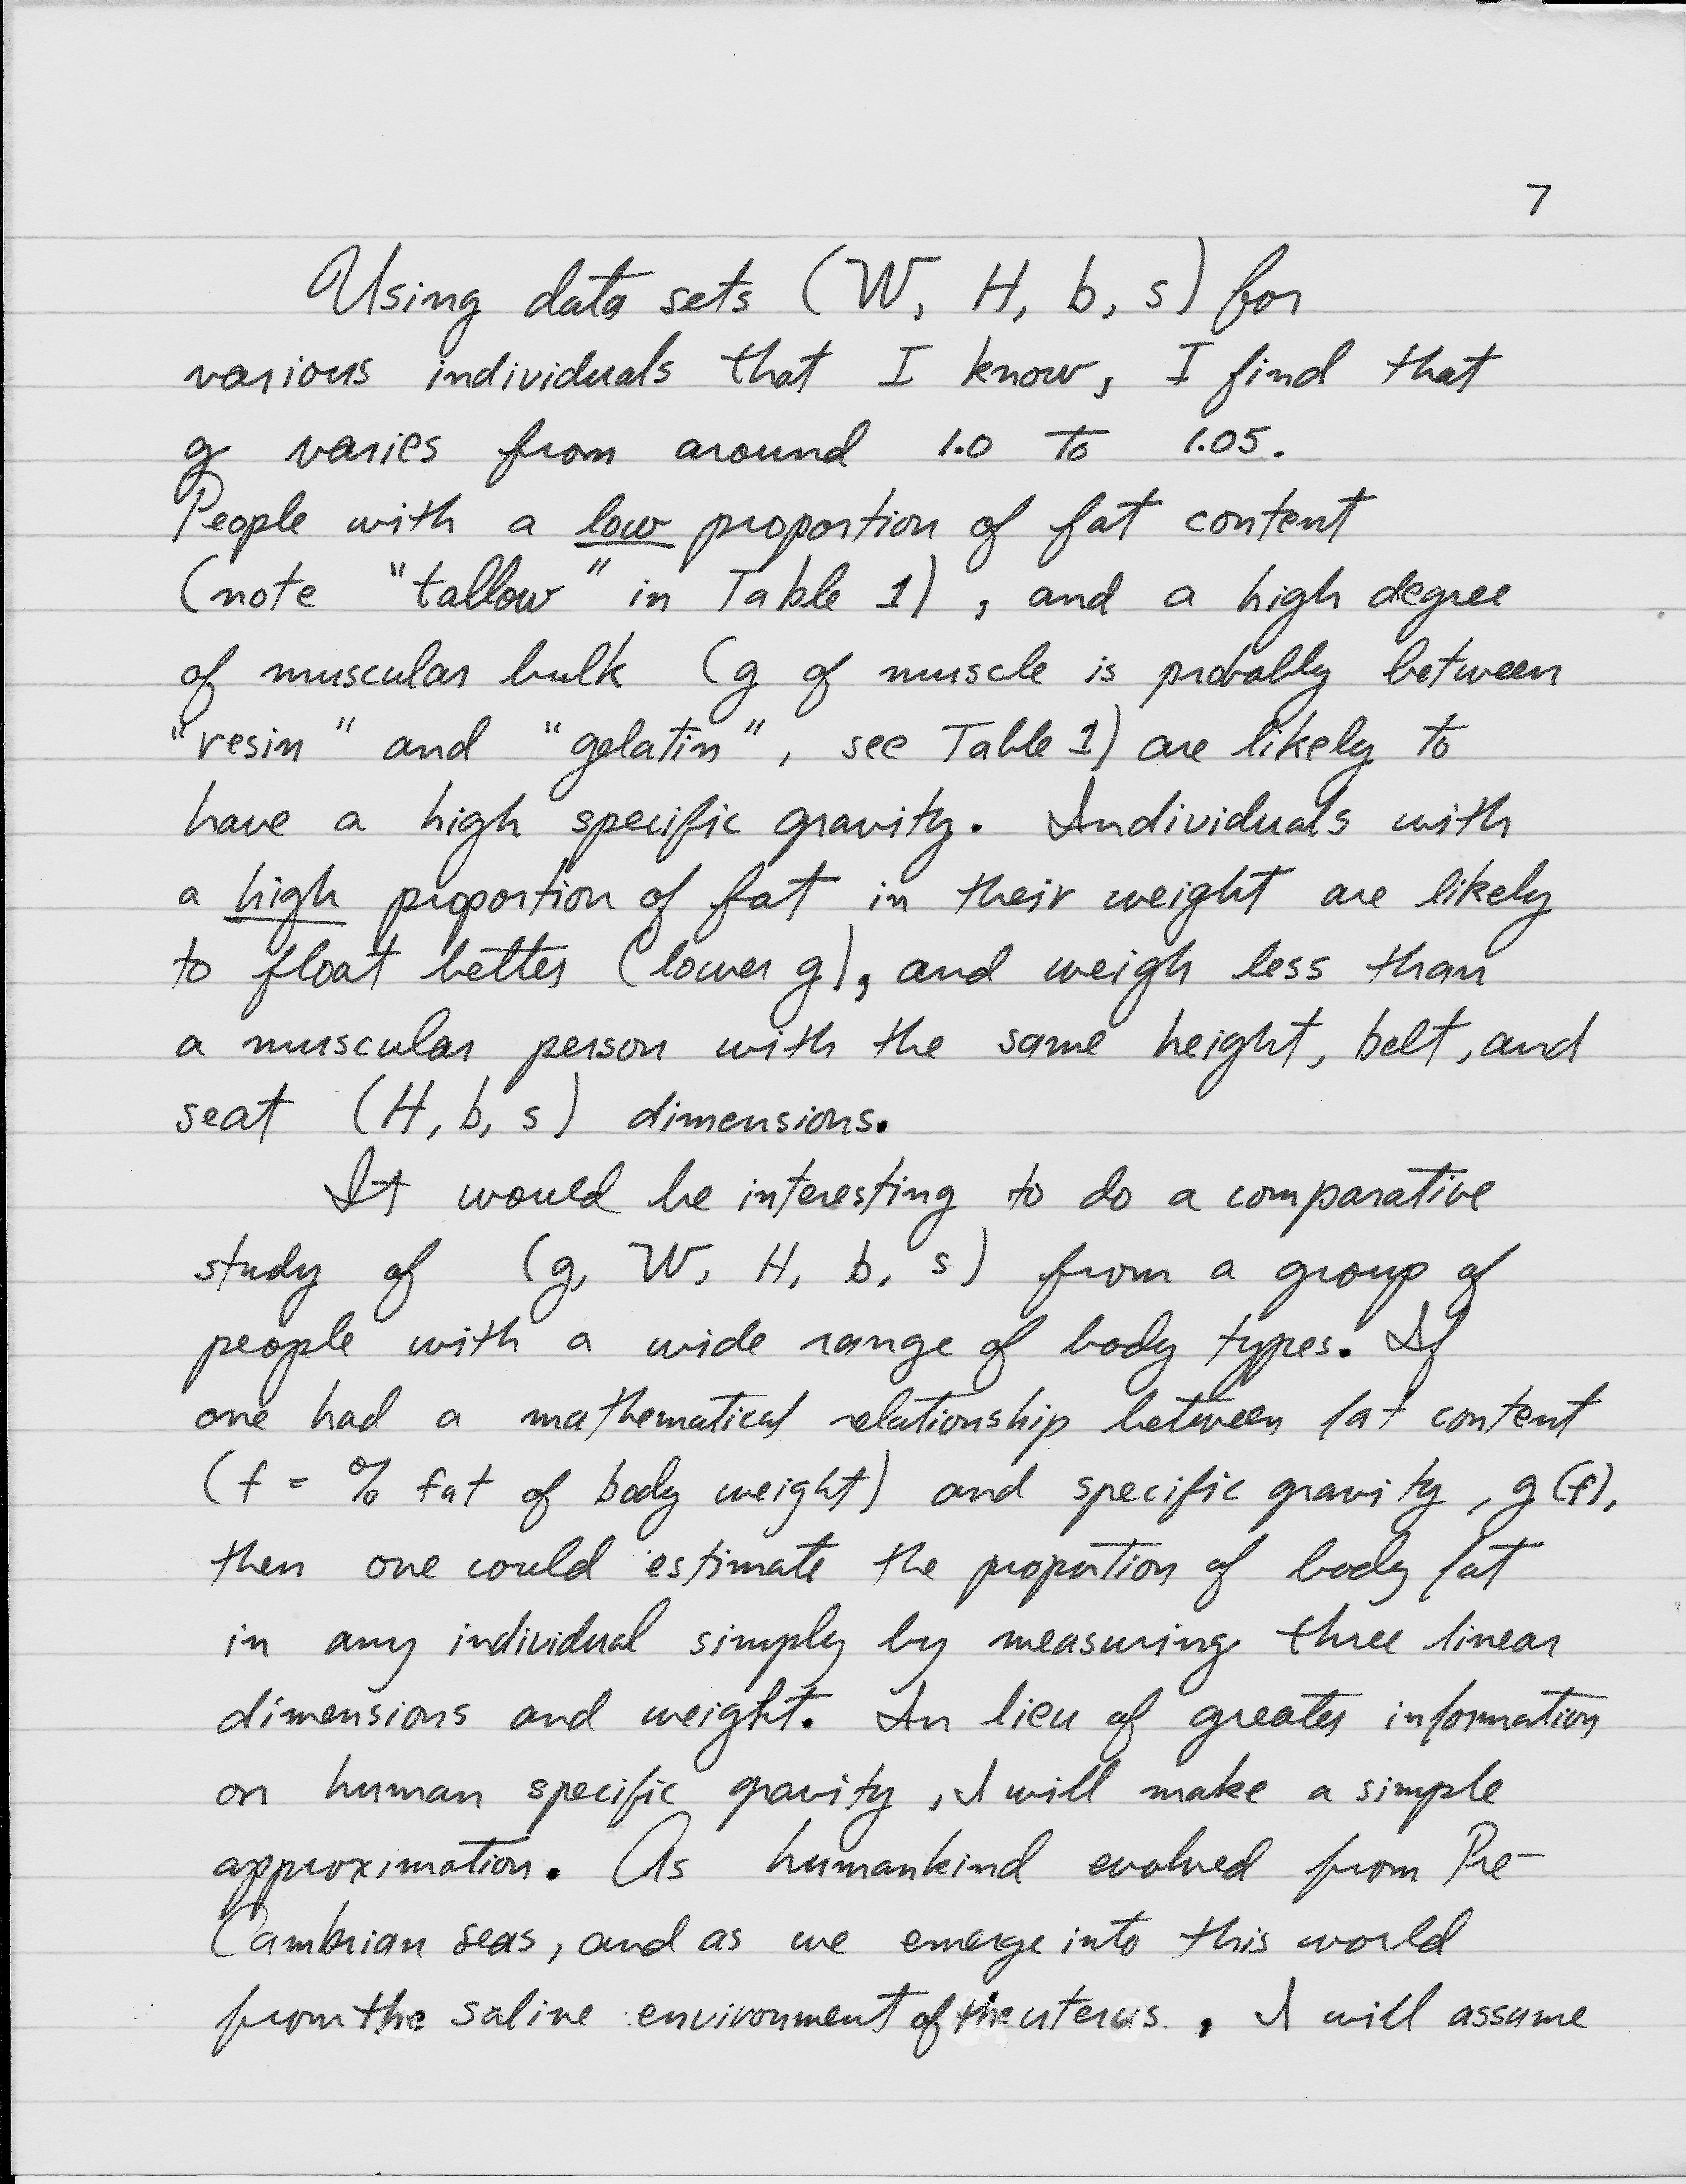 7
Using data sets (W, H, b, s) for
various individuals that I know, I find that
g varies from around 1.0 to 1.05.
People with a low proportion of fat content
(note "tallow" in Table 1), and a high degree
of muscular bulk (g of muscle is probably between
"resin" and "gelatin", see Table 1) are likely to
have a high specific gravity. Individuals with
a high proportion of fat in their weight are likely
to float better (lower g), and weigh less than
a muscular person with the same height, belt, and
seat (H, b, s) dimensions.
It would be interesting to do a comparative
study of (g, W, H, b, s) from a group of
people with a wide range of body types. If
one had a mathematical relationship between fat content
(f = % fat of body weight) and specific gravity, g(f),
then one could estimate the proportion of body fat
in any individual simply by measuring three linear
dimensions and weight. In lieu of greater information
on human specific gravity, I will make a simple
approximation. As humankind evolved from Pre-
Cambrian seas, and as we emerge into this world
from the saline environment of the uterus, I will assume